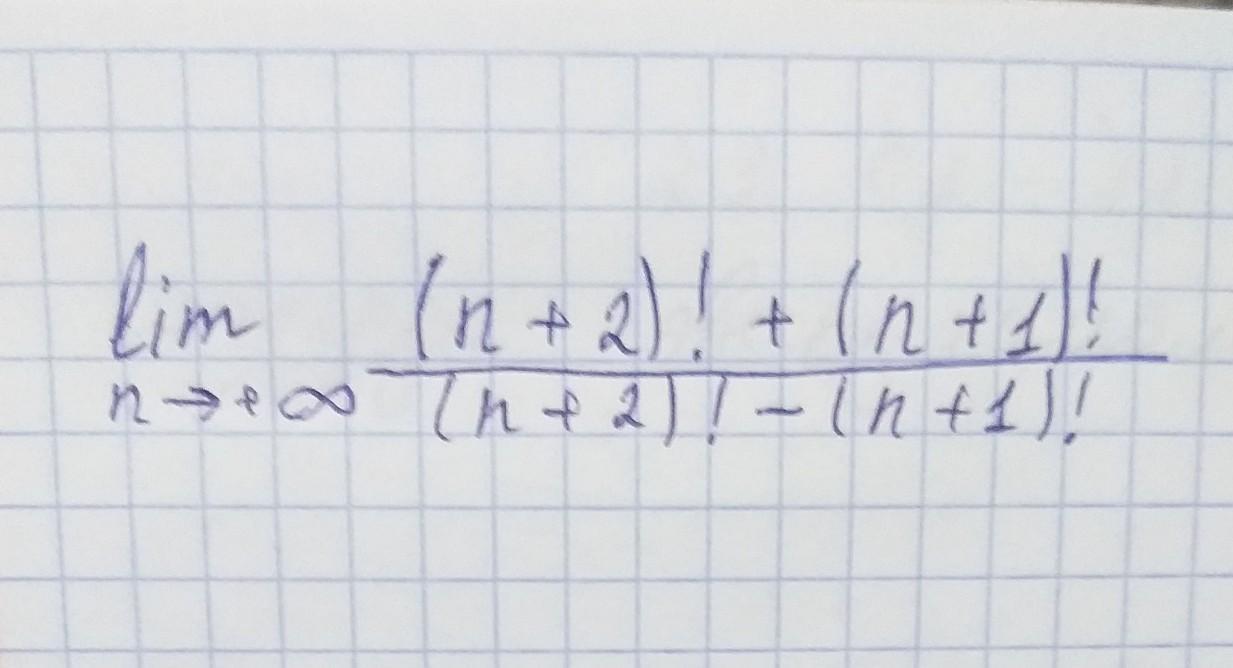 lim (n + 2)! + (n + 1)!
n → + ∞ (n + 2)! − (n + 1)!